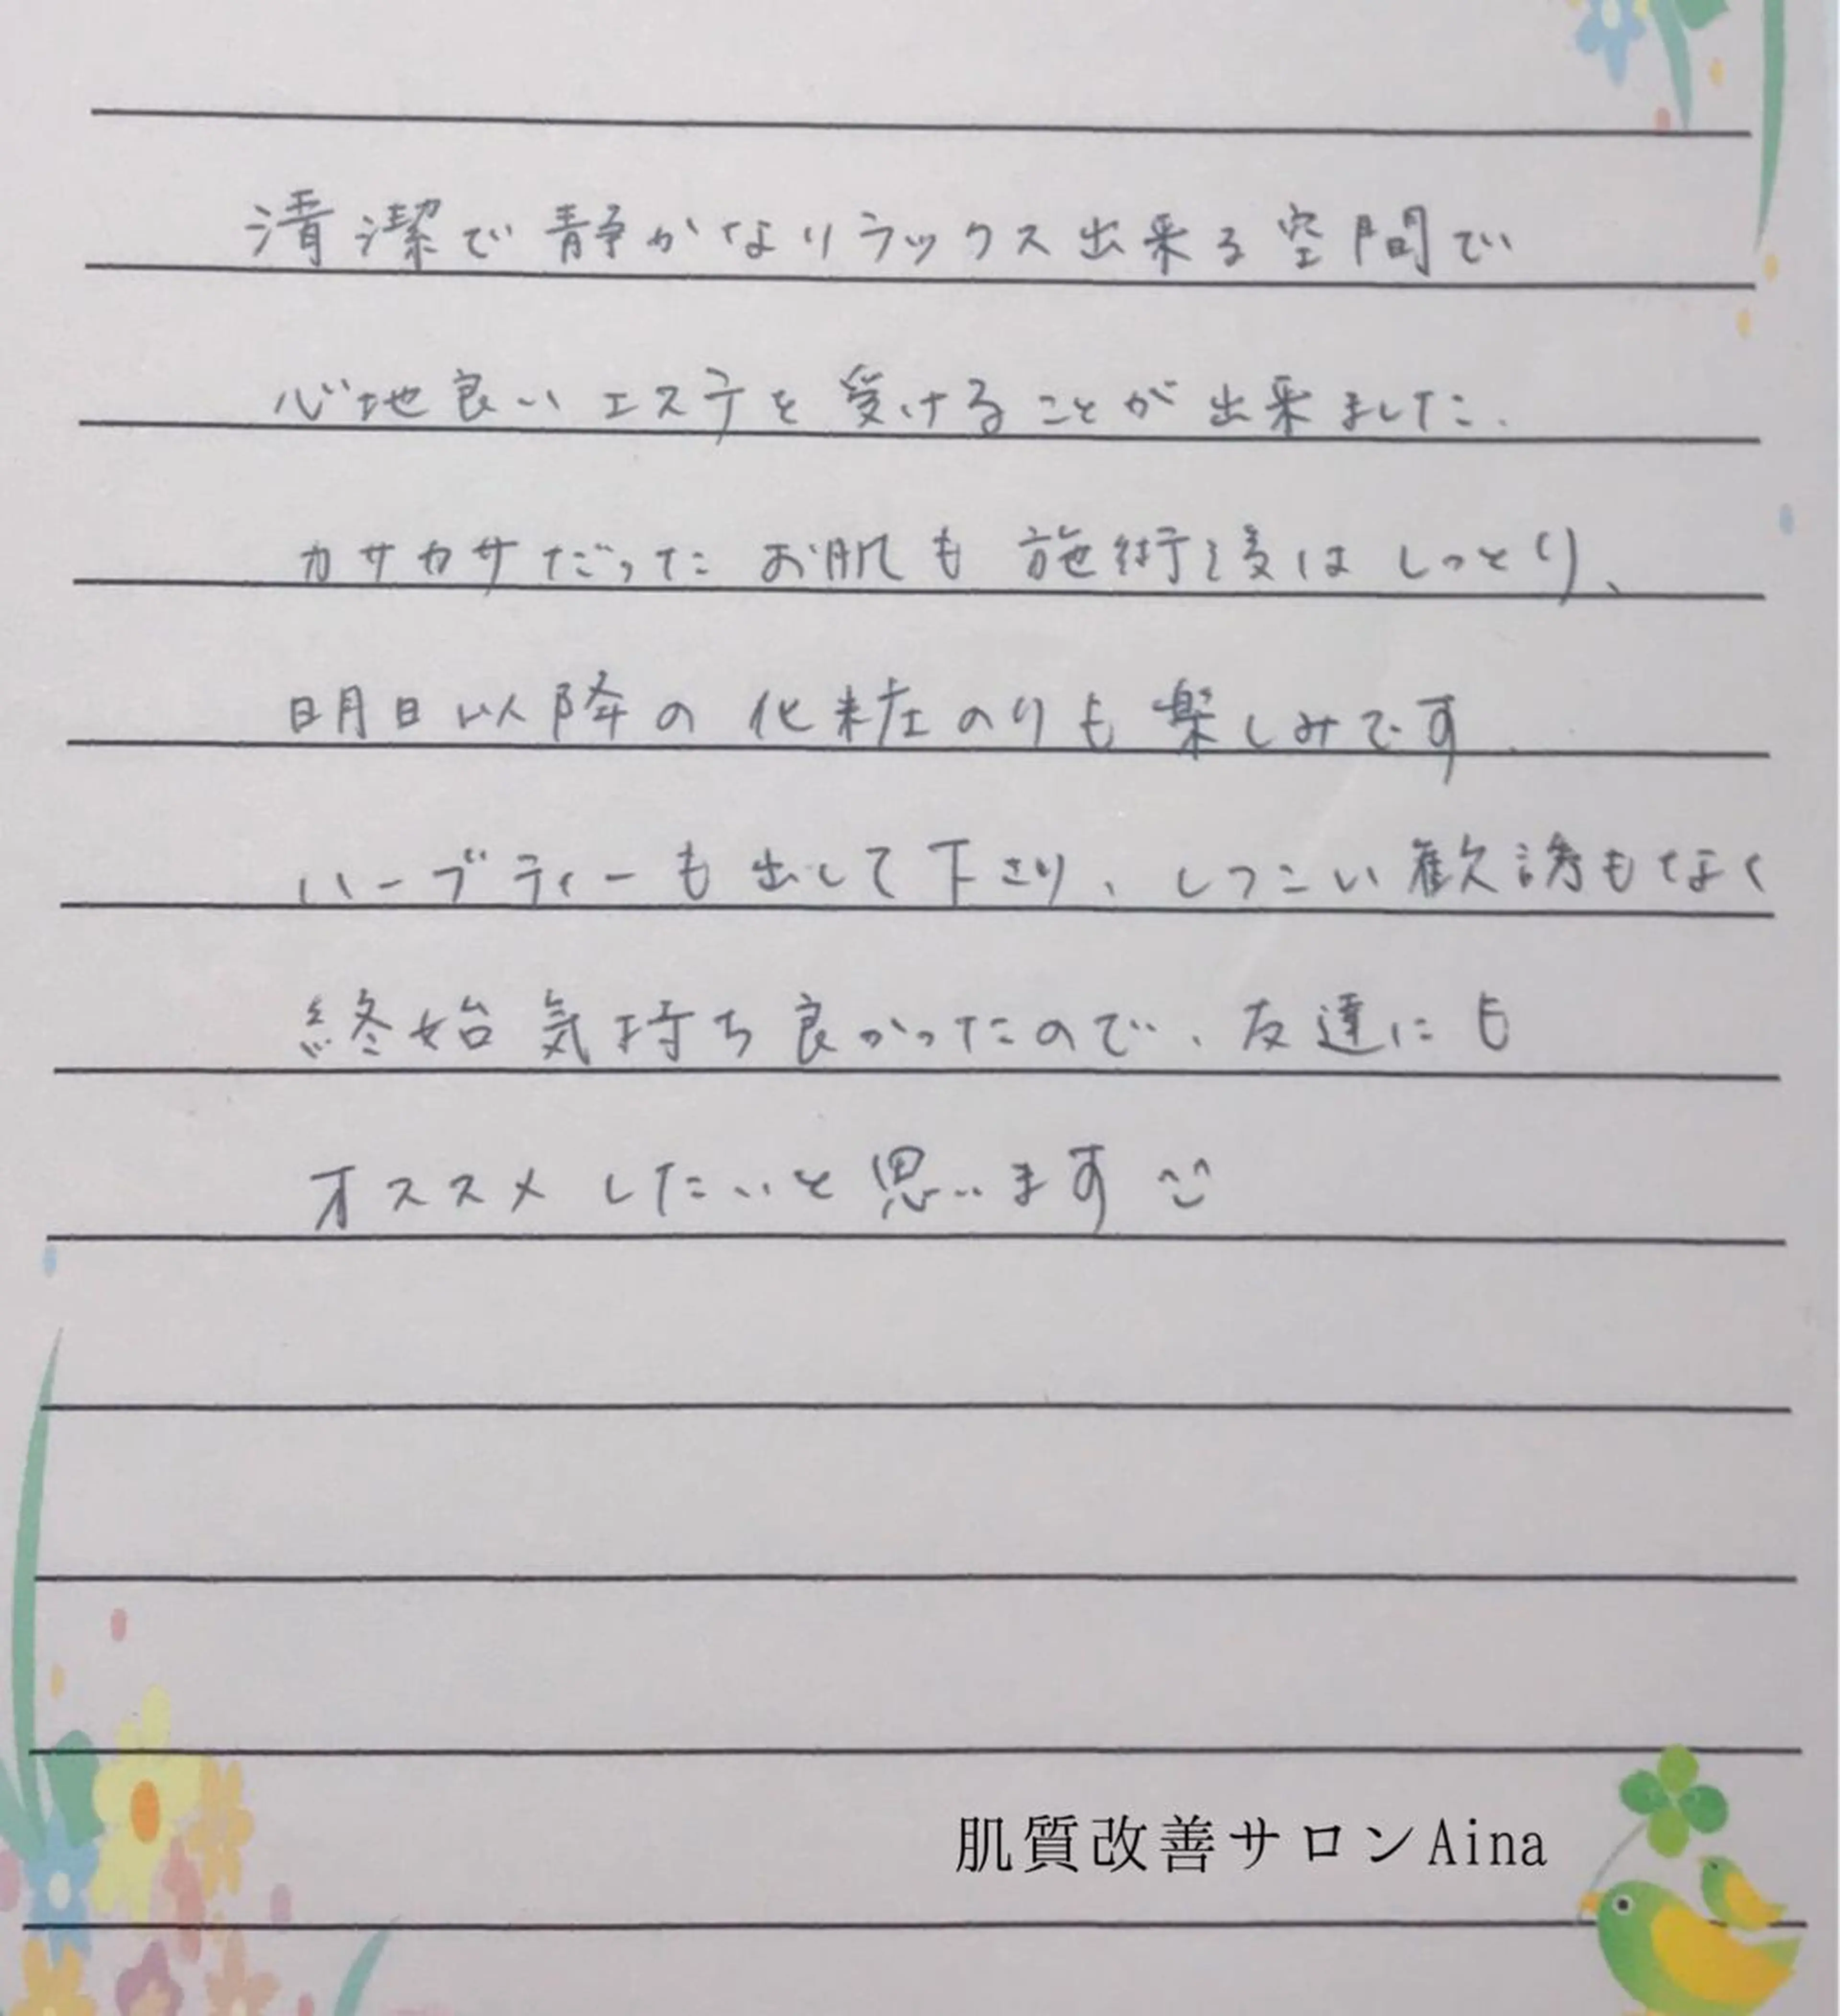 清潔で静かなリラックス出来る空間で
心地良いエステを受けることが出来ました.
カサカサだったお肌も施術後はしっとり、
明日以降の化粧のりも楽しみです.
ハーブティーも出して下さり、しつこい歓誘もなく
終始気持ち良かったので、友達にも
オススメしたいと思います
肌質改善サロンAina